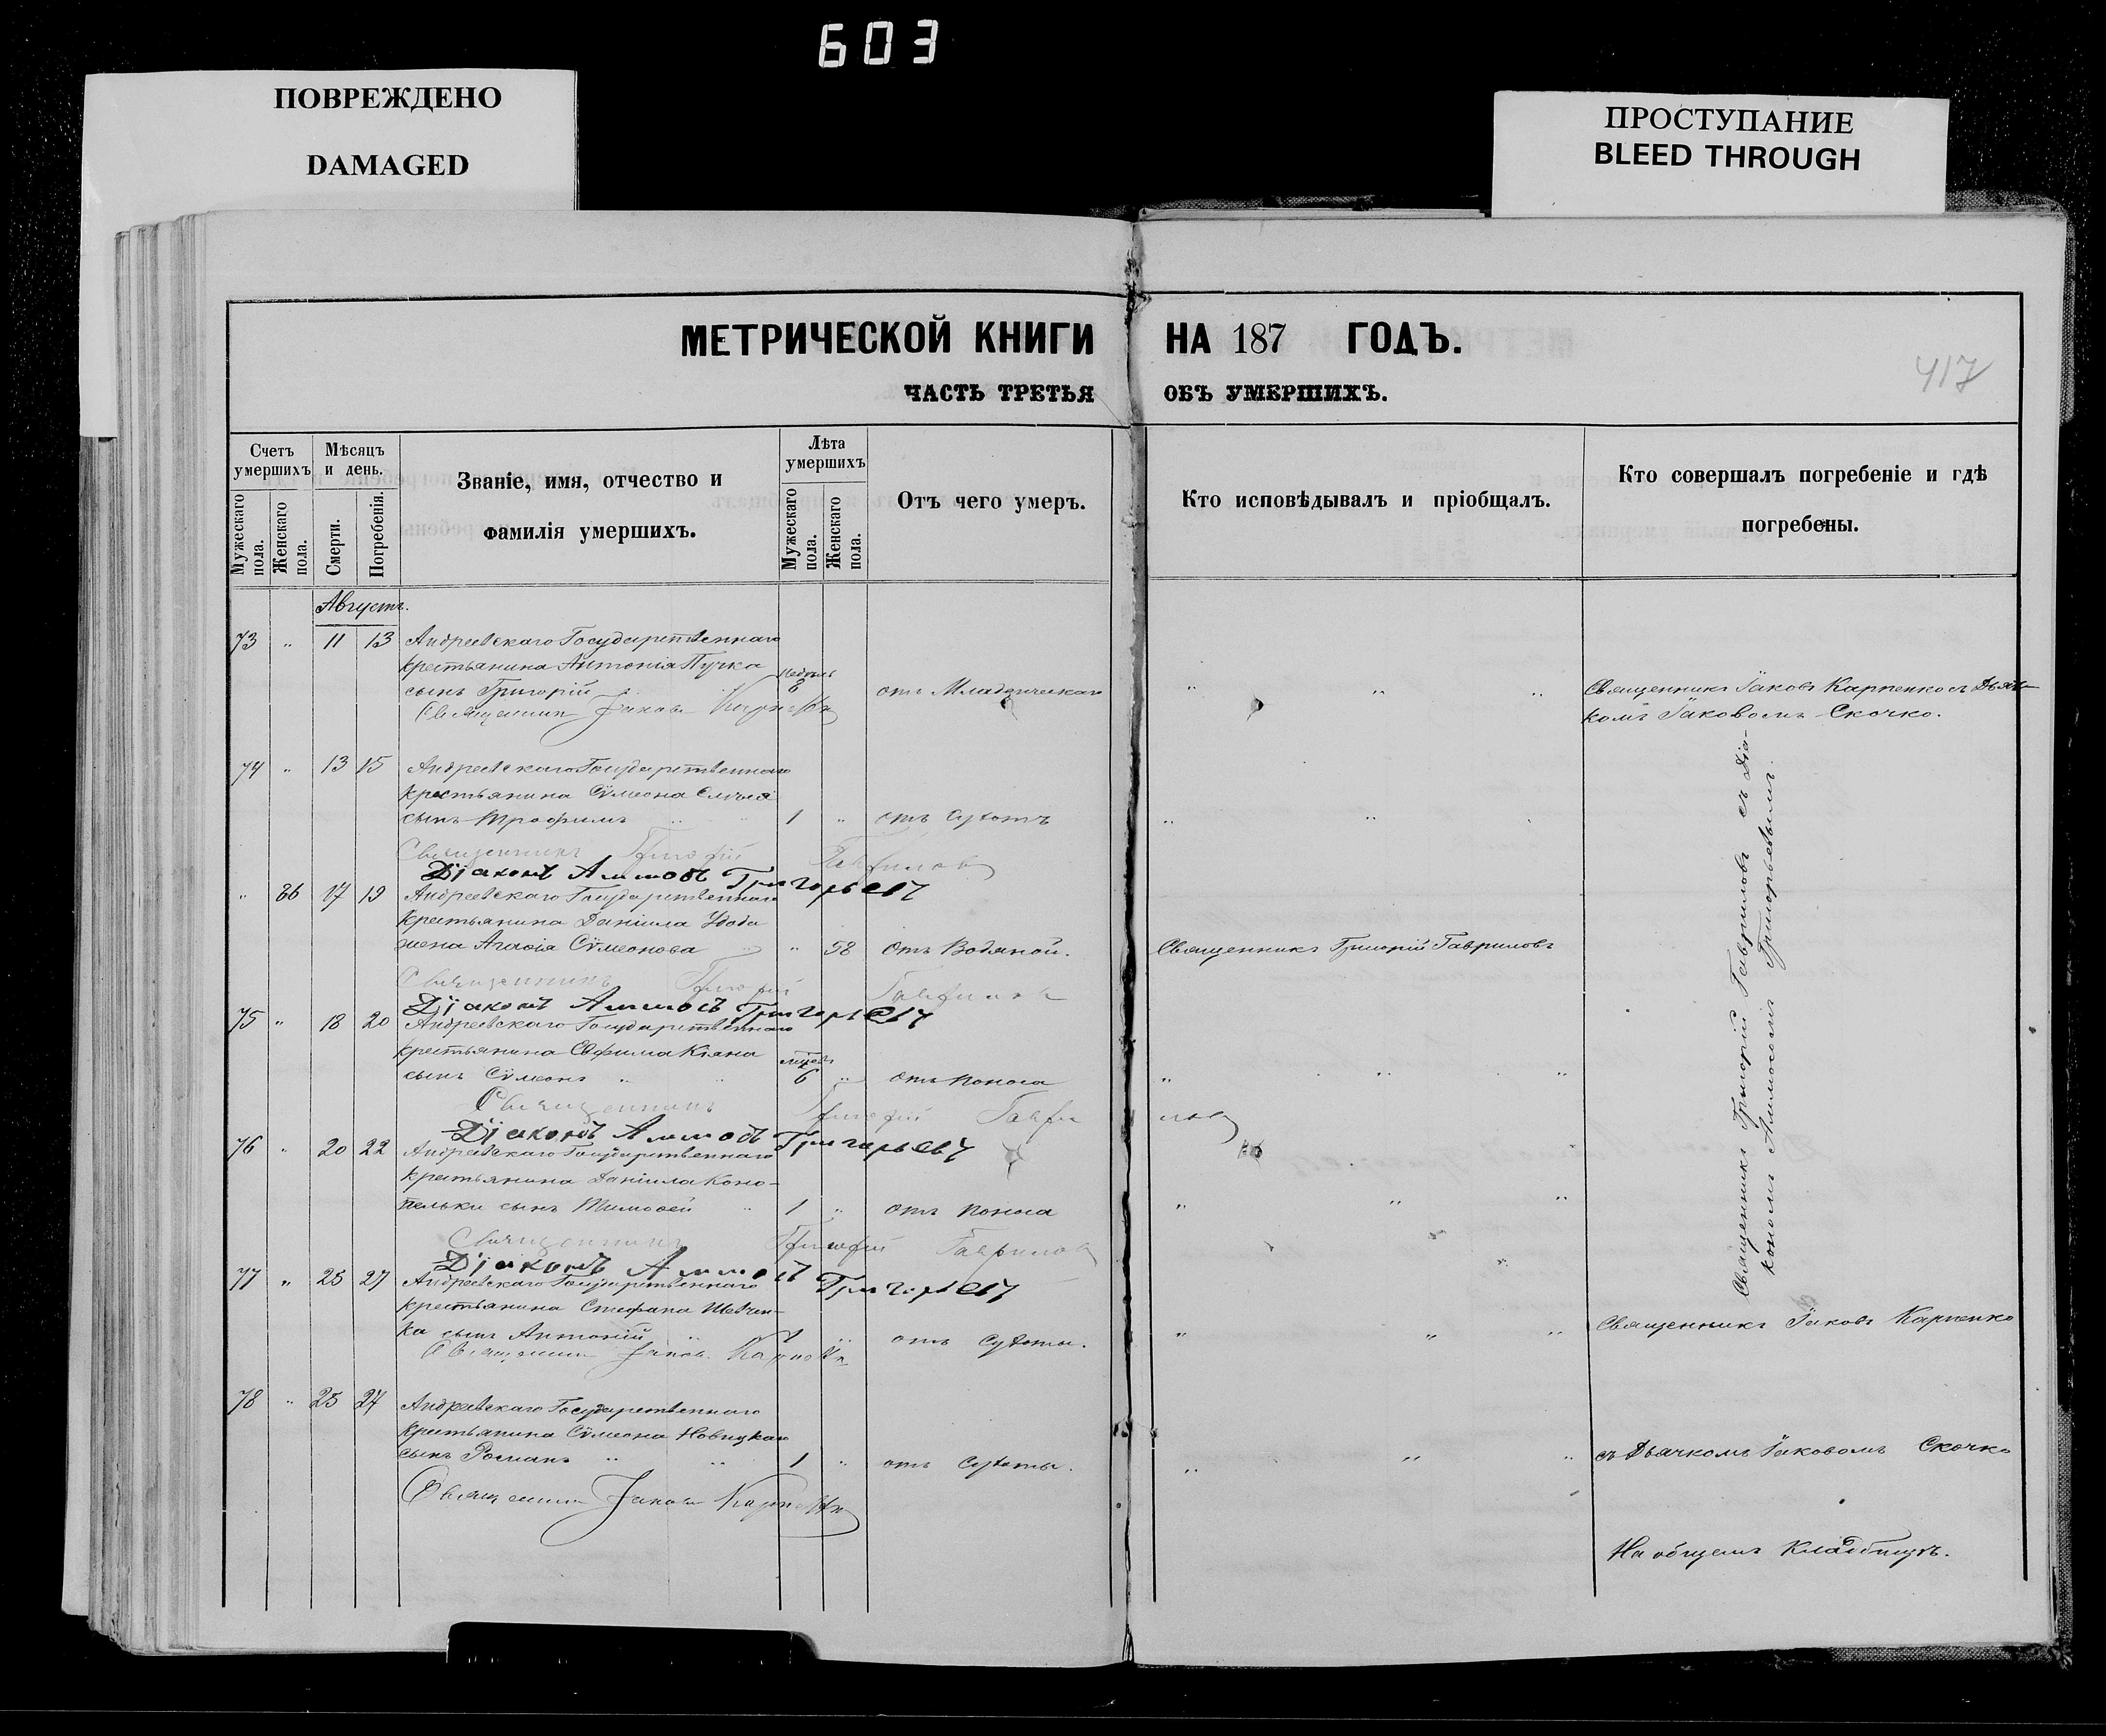 603
ПОВРЕЖДЕНО
DAMAGED
ПРОСТУПАНИЕ
BLEED THROUGH
МЕТРИЧЕСКОЙ КНИГИ НА 187 ГОДЪ.
417
ЧАСТЬ ТРЕТЬЯ ОБЪ УМЕРШИХЪ.
Счетъ умершихъ
Мужескаго пола.
Женскаго пола.
Мѣсяцъ и день.
Смерти.
Погребенія.
Званіе, имя, отчество и
фамилія умершихъ.
Лѣта умершихъ
Мужескаго пола.
Женскаго пола.
Отъ чего умеръ.
Кто исповѣдывалъ и пріобщалъ.
Кто совершалъ погребеніе и гдѣ
погребены.
Августъ.
73 " 11 13 Андреевскаго Государственнаго
крестьянина Антонія Пучка
сынъ Григорій 8 отъ Младенческаго " " " Священникъ Іаковъ Карпенко съ Дьяч-
комъ Іаковомъ Скочко.
Священникъ Іаковъ Карпенко
74 " 13 15 Андреевскаго Государственнаго
крестьянина Сѵмеона
сынъ Трофимъ " " 1 " отъ Сухотъ " " "
Священникъ Григорій Гавриловъ
Діаконъ Аммосъ Григорьевъ
" 36 17 19 Андреевскаго Государственнаго
крестьянина Даніила Удода
жена Агаѳія Сѵмеонова " " 58 отъ Водяной. Священникъ Григорій Гавриловъ
Священникъ Григорій Гавриловъ
Діаконъ Аммосъ Григорьевъ
75 " 18 20 Андреевскаго Государственнаго
крестьянина Евфима Кіяна
сынъ Сѵмеонъ " " 6 " отъ поноса " " "
Священникъ Григорій Гавриловъ
Діаконъ Аммосъ Григорьевъ
76 " 20 22 Андреевскаго Государственнаго
крестьянина Даніила Коно-
пельки сынъ Тимоѳей " 1 " отъ поноса " " "
Священникъ Григорій Гавриловъ
Діаконъ Аммосъ Григорьевъ
Священникъ Григорій Гавриловъ съ Діа-
кономъ Аммосомъ Григорьевымъ.
77 " 25 27 Андреевскаго Государственнаго
крестьянина Стефана Шевчен-
ка сынъ Антоній " 1 " отъ Сухоты. " " " Священникъ Іаковъ Карпенко
Священникъ Іаковъ Карпенко
78 " 25 27 Андреевскаго Государственнаго
крестьянина Сѵмеона Новицкаго
сынъ Романъ " " 1 " отъ Сухоты. " " " съ Дьячкомъ Іаковомъ Скочко
Священникъ Іаковъ Карпенко
На общемъ Кладбищѣ.